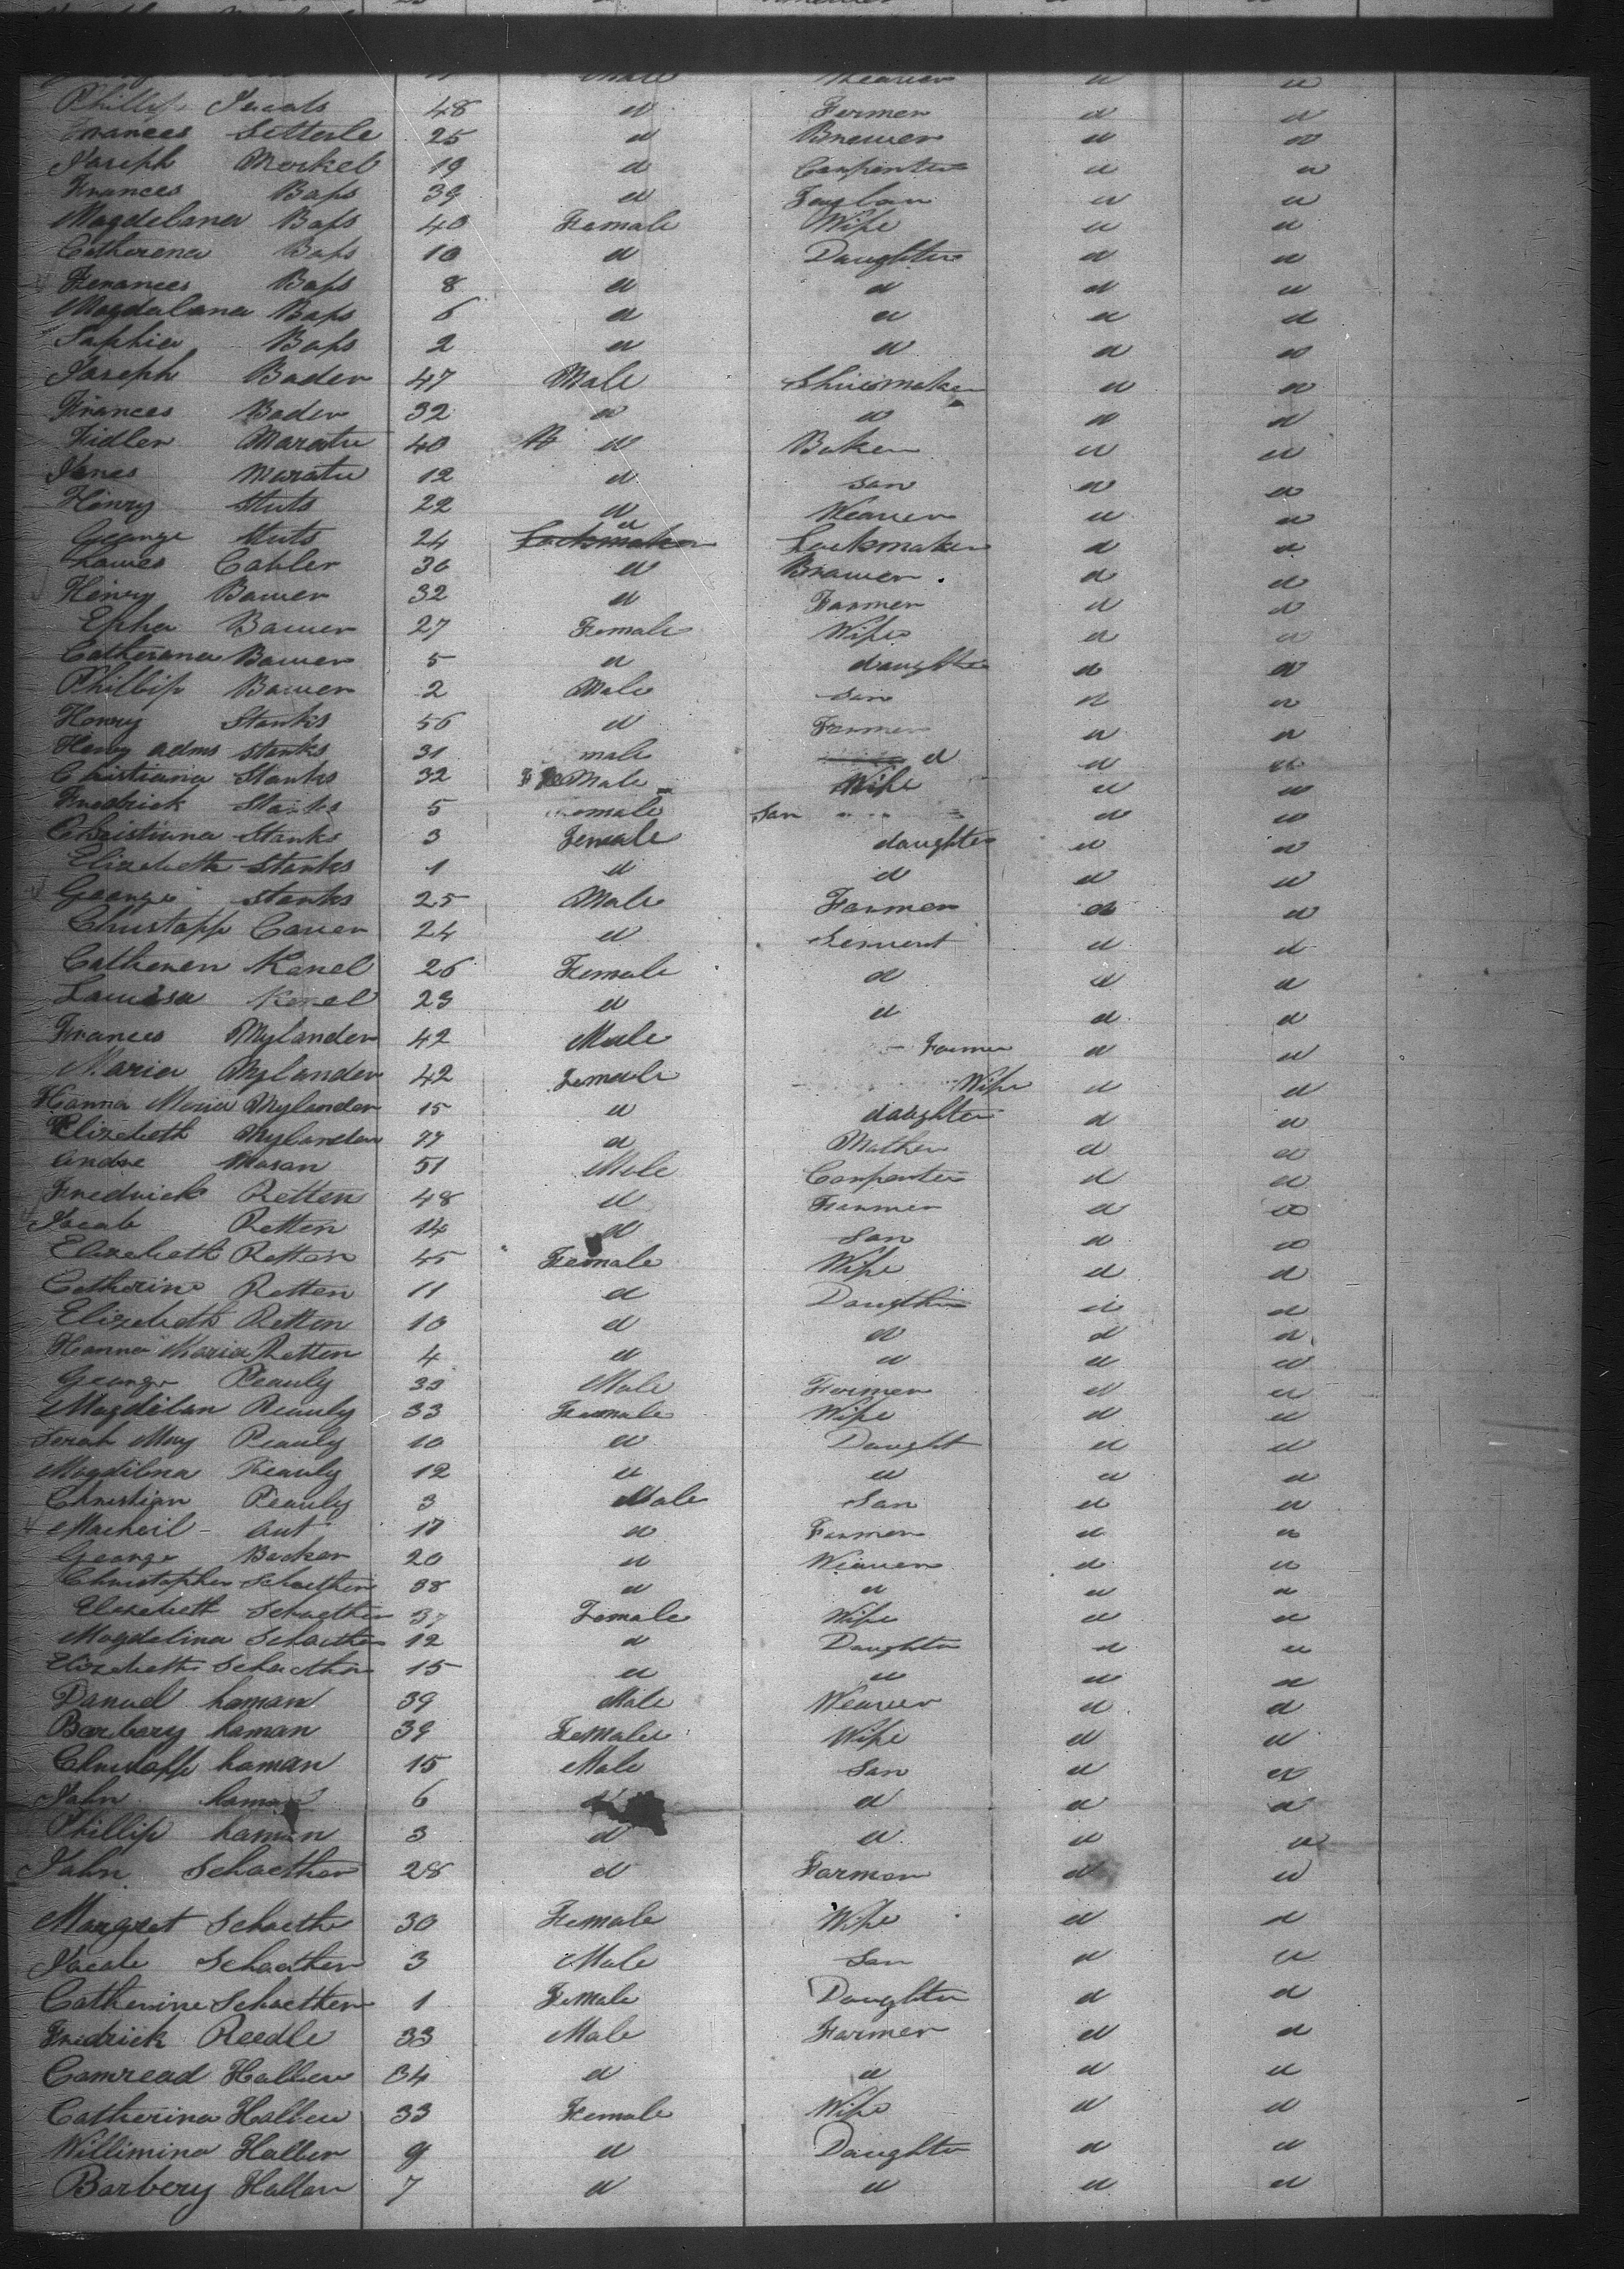 Male Weaver d d
Phillip Jacobs 48 d Farmer d d
Frances Sitterle 25 d Brewer d d
Joseph Merkel 19 d Carpenter d d
Frances Baps 39 d Taylor d d
Magdelana Baps 40 Female Wife d d
Catherena Baps 10 d Daughter d d
Frances Baps 8 d d d d
Magdalana Baps 6 d d d d
Saphia Baps 2 d d d d
Joseph Bader 47 Male Shuemaker d d
Frances Bader 32 d d d d
Fidler Maratu 40 d Baker d d
Maratu 12 d san d d
Henry Stuts 22 d Weaver d d
George Stuts 24 Lockmaker d Lockmaker d d
Lawes Cabler 30 d Brawer d d
Henry Bawer 32 d Farmer d d
Epha Bawer 27 Female Wife d d
Catherana Bawer 5 d daughter d d
Phillip Bawer 2 Male san d d
Henry Stanks 56 d Farmer d d
Henry adms Stanks 31 male d d d
Christiana Stanks 32 FeMale Wife d d
Fredrick Stanks 5 male San d d
Christiana Stanks 3 Female daughter d d
Elizebeth Stanks 1 d d d d
George Stanks 25 Male Farmer d d
Chustapp Caver 24 d Servent d d
Catheren Kenel 26 Female d d d
Lawisa Kenel 23 d d d d
Frances Mylander 42 Male Farmer d d
Maria Mylander 42 Female Wife d d
Hanna Maria Mylander 15 d daughter d d
Elizebeth Mylander 77 d Mother d d
Andre Masan 51 Male Carpenter d d
Fredrick Retten 48 d Farmer d d
Jacob Retten 14 d San d d
Elizebeth Retten 45 Female Wife d d
Catherine Retten 11 d Daugthir d d
Elizebeth Retten 10 d d d d
Hanna Maria Retten 4 d d d d
George Peauly 33 Male Farmer d d
Magdilan Peauly 33 Female Wife d d
Serah Mary Peauly 10 d Daught d d
Magdilena Peauly 12 d d d d
Christian Peauly 3 Male San d d
Macheil Aut 17 d Farmer d d
George Backer 20 d Weaver d d
Christopher Schaether 38 d d d d
Elizebeth Schaether 37 Female Wife d d
Magdelina Schaether 12 d Daughter d d
Elizebeth Schaether 15 d d d d
Danuel haman 39 Male Weaver d d
Barbary haman 39 FeMale Wife d d
Chustapp haman 15 Male San d d
John haman 6 d d d d
Phillip haman 3 d d d d
John Schaether 28 d Farmer d d
Margret Schaethe 30 Female Wife d d
Jacob Schaether 3 Male San d d
Catherine Schaether 1 FeMale Daughter d d
Fredrick Reedle 33 Male Farmer d d
Camread Halber 34 d d d d
Catherina Halber 33 Female Wife d d
Willimina Halber 9 d Daughter d d
Barbery Halber 7 d d d d